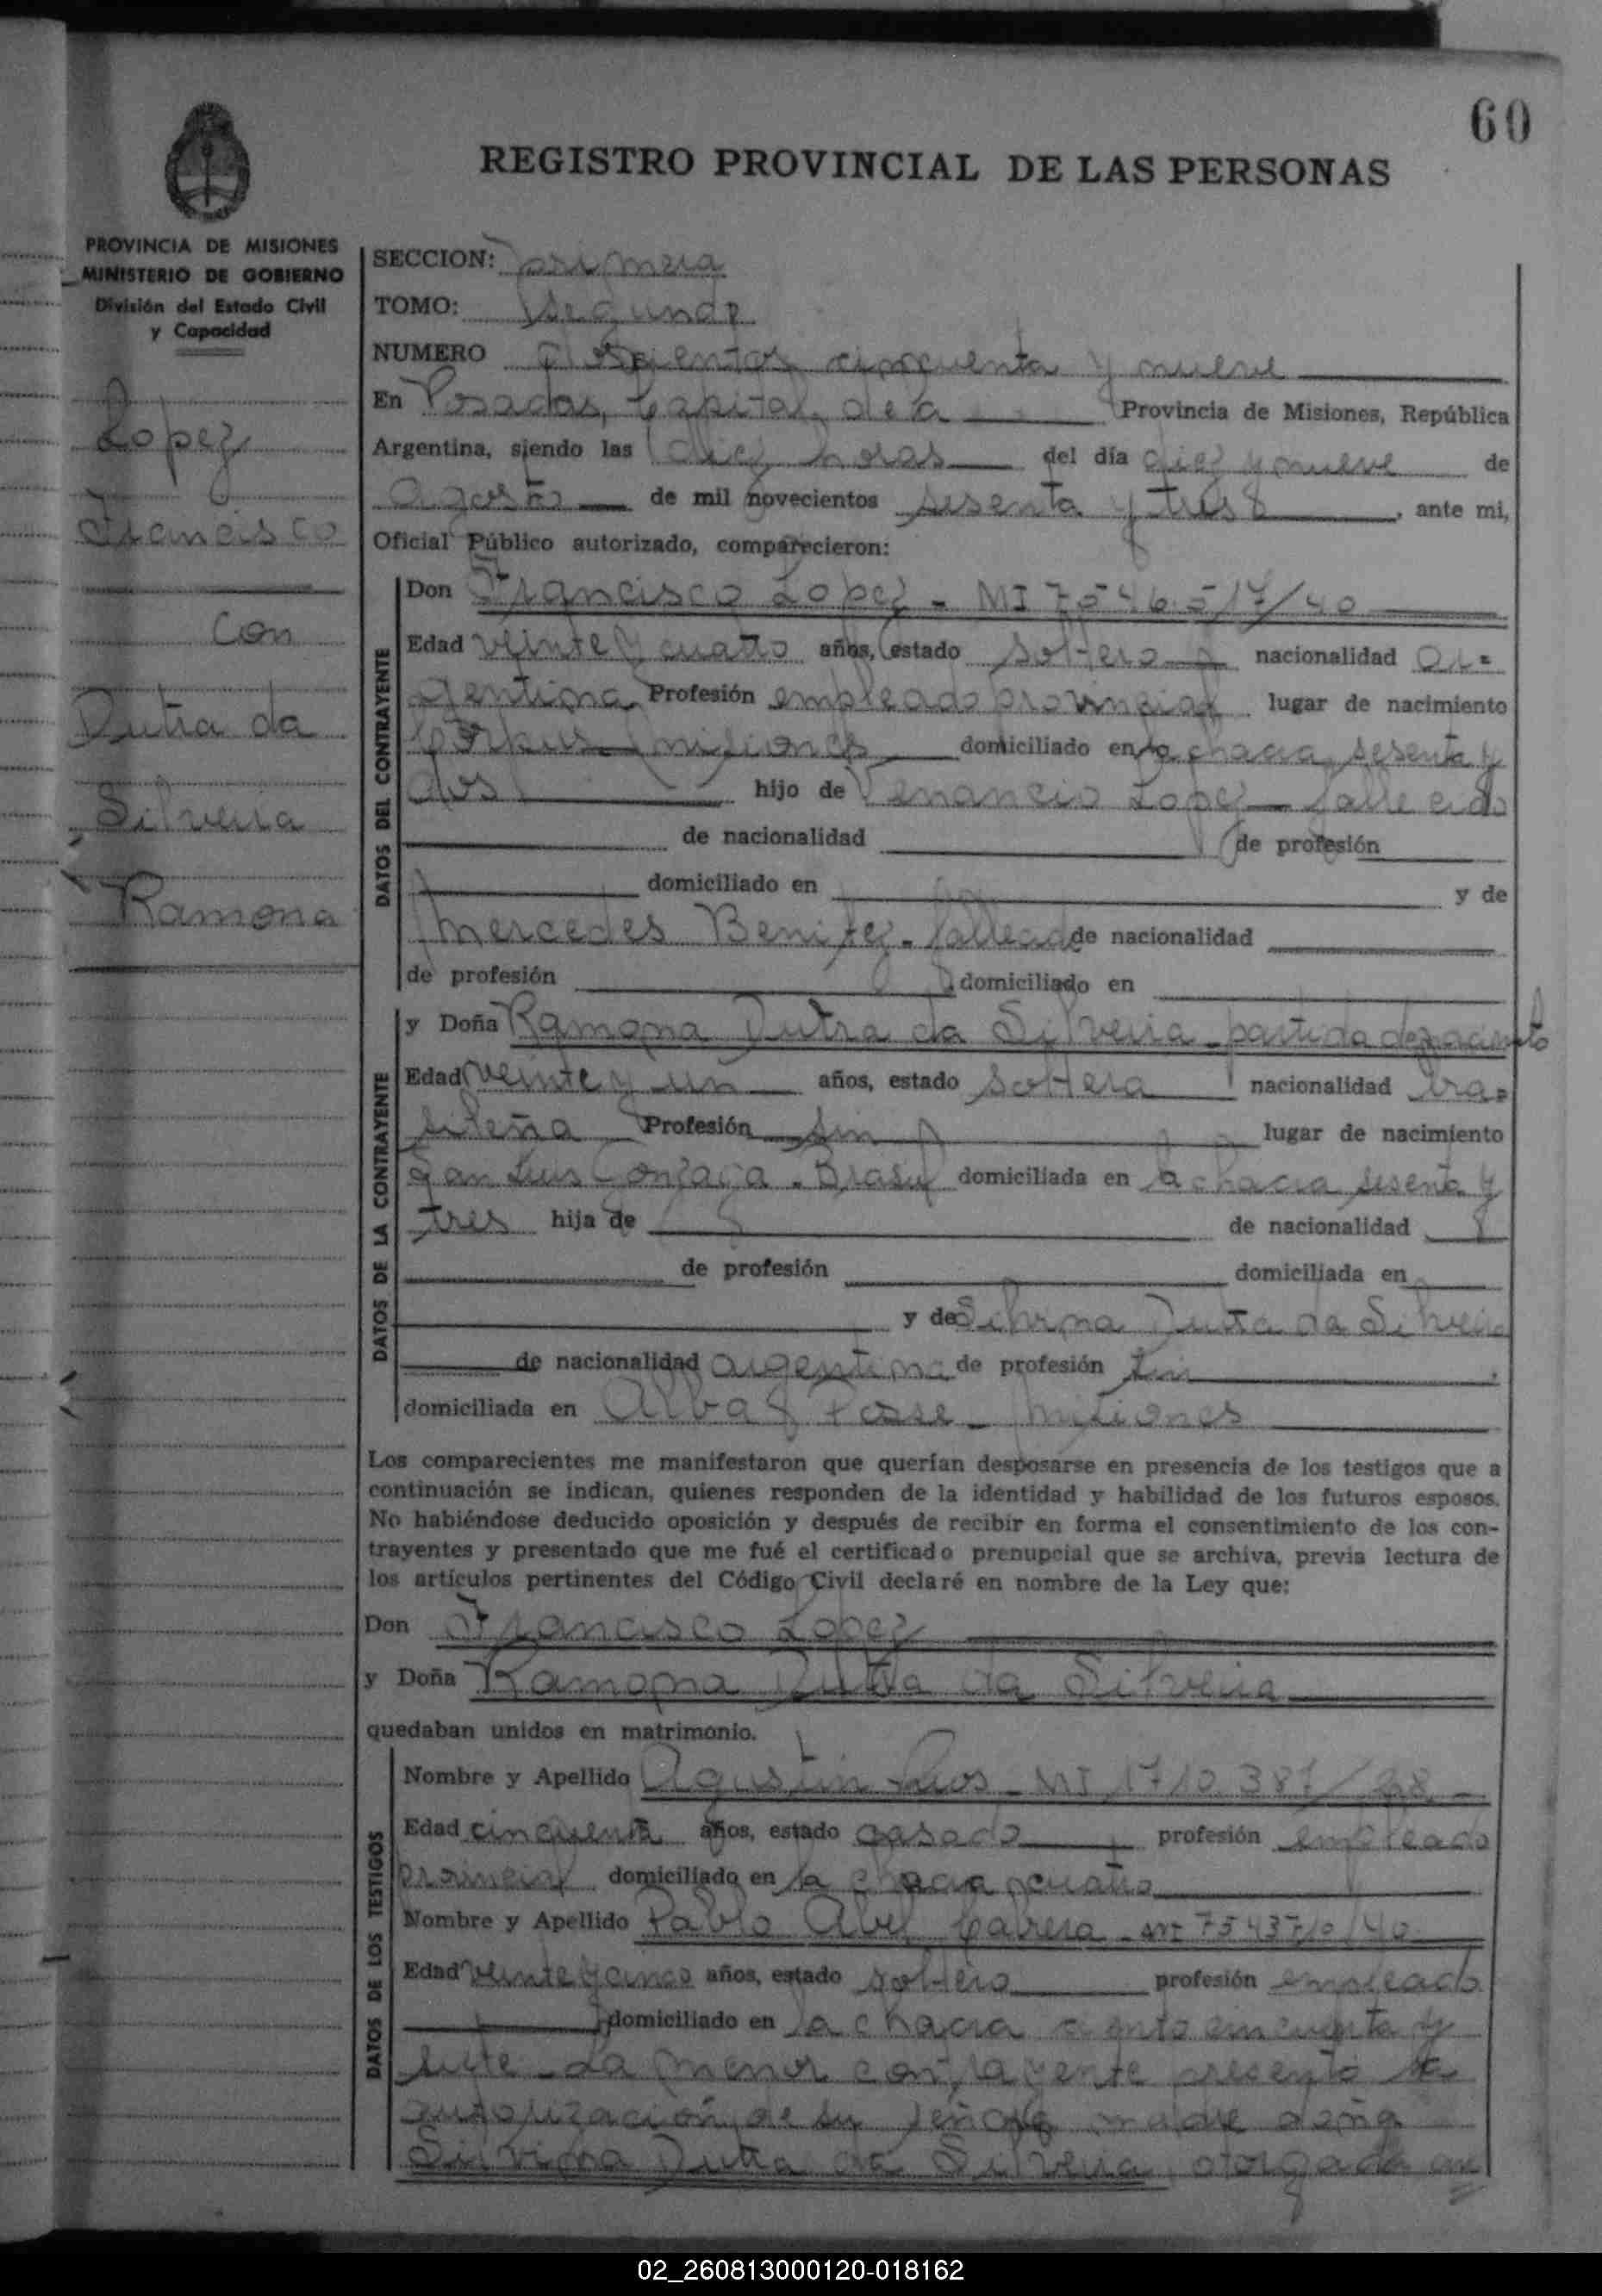 60
REGISTRO PROVINCIAL DE LAS PERSONAS
PROVINCIA DE MISIONES
MINISTERIO DE GOBIERNO
División del Estado Civil
y Capacidad
Lopez
Francisco
con
Dutra da
Silveira
Ramona
SECCION: primera
TOMO: segundo
NUMERO doscientos cincuenta y nueve
En Posadas, Capital de la Provincia de Misiones, República
Argentina, siendo las diez horas del día diez y nueve de
agosto de mil novecientos sesenta y tres, ante mi,
Oficial Público autorizado, comparecieron:
DATOS DEL CONTRAYENTE
Don Francisco Lopez - MI 7546517/40
Edad veinte y cuatro años, estado soltero nacionalidad ar-
gentina Profesión empleado provincial lugar de nacimiento
Corpus - misiones domiciliado en la chacra sesenta y
dos hijo de Venancio Lopez - fallecido
de nacionalidad de profesión
domiciliado en y de
Mercedes Benitez - fallecida de nacionalidad
de profesión domiciliado en
DATOS DE LA CONTRAYENTE
y Doña Ramona Dutra da Silveira - partida de nacimiento
Edad veinte y un años, estado soltera nacionalidad bra-
sileña Profesión sin lugar de nacimiento
San Luis Gonzaga - Brasil domiciliada en la chacra sesenta y
tres hija de de nacionalidad
de profesión domiciliada en
y de Silvina Dutra da Silveira
de nacionalidad argentina de profesión sin
domiciliada en Alba Posse - misiones
Los comparecientes me manifestaron que querían desposarse en presencia de los testigos que a
continuación se indican, quienes responden de la identidad y habilidad de los futuros esposos.
No habiéndose deducido oposición y después de recibir en forma el consentimiento de los con-
trayentes y presentado que me fué el certificado prenupcial que se archiva, previa lectura de
los artículos pertinentes del Código Civil declaré en nombre de la Ley que:
Don Francisco Lopez
y Doña Ramona Dutra da Silveira
quedaban unidos en matrimonio.
DATOS DE LOS TESTIGOS
Nombre y Apellido Agustin - MI 1710.387/28 -
Edad cincuenta años, estado casado profesión empleado
provincial domiciliado en la chacra cuatro
Nombre y Apellido Pablo Abel Cabrera - MI 7543710/40
Edad veinte y cinco años, estado soltero profesión empleado
domiciliado en la chacra ciento cincuenta y
siete - La menor contrayente presento la
autorización de su señora madre doña
Silvina Dutra da Silveira, otorgada an
02_260813000120-018162